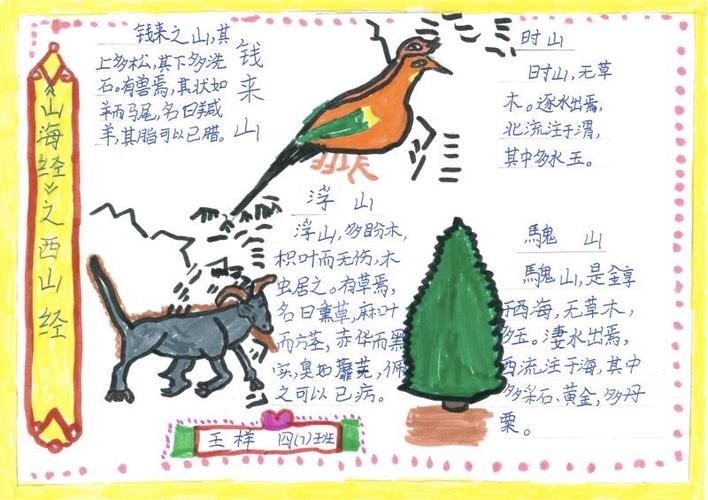 《山海经》之西山经
钱来山
钱来之山,其
上多松,其下多洗
石。有兽焉,其状如
羊而马尾,名曰羬
羊,其脂可以已腊。
时山
时山,无草
木。逐水出焉,
北流注于渭,
其中多水玉。
浮 山
浮山,多盼木,
枳叶而无伤,木
虫居之。有草焉,
名曰熏草,麻叶
而方茎,赤华而黑
实,臭如蘼芜,佩
之可以已疠。
騩 山
騩山,是錞
于西海,无草木,
多玉。凄水出焉,
西流注于海,其中
多采石、黄金,多丹
粟。
王样 四(7)班